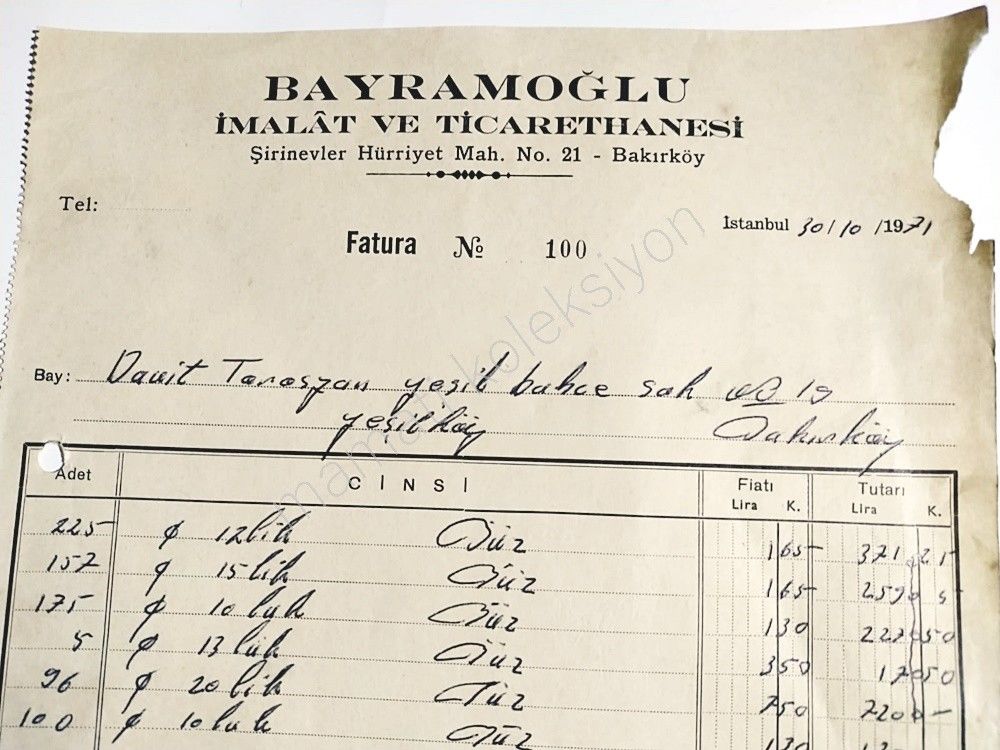 BAYRAMOĞLU
İMALÂT VE TİCARETHANESİ
Şirinevler Hürriyet Mah. No. 21 - Bakırköy
Tel:
İstanbul 30/10/1971
Fatura № 100
Bay: Davit Tarosyan yeşil bahce sok 19
yeşilköy Bakırköy
Adet CİNSİ Fiatı Lira K. Tutarı Lira K.
225 ϕ 12lik Düz 1 65 371 25
157 ϕ 15lik Düz 1 65 259 05
175 ϕ 10luk Düz 1 30 227 50
5 ϕ 13lük Düz 3 50 17 50
96 ϕ 20lik Düz 7 50 720 -
100 ϕ 10luk Düz 1 30
koleksiyon